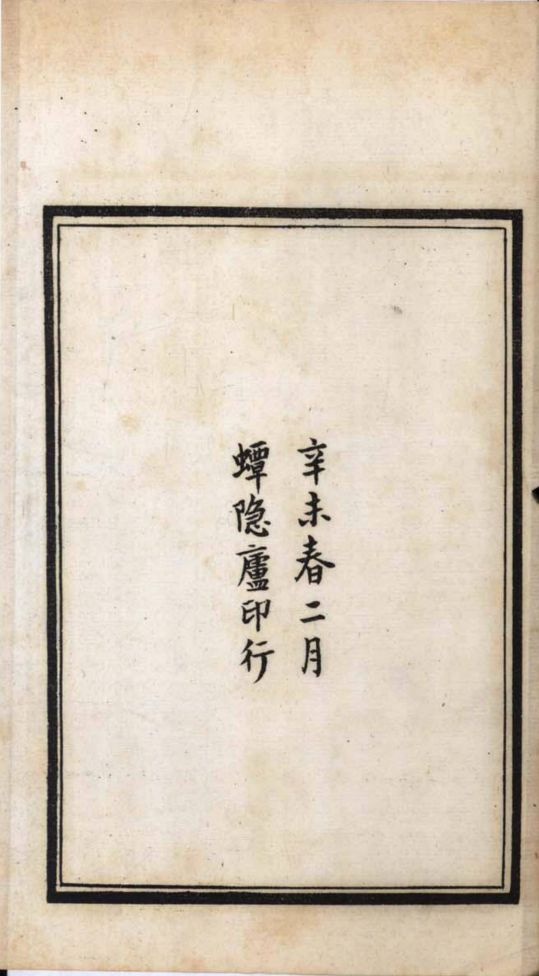 辛未春二月
蟫隐廬印行